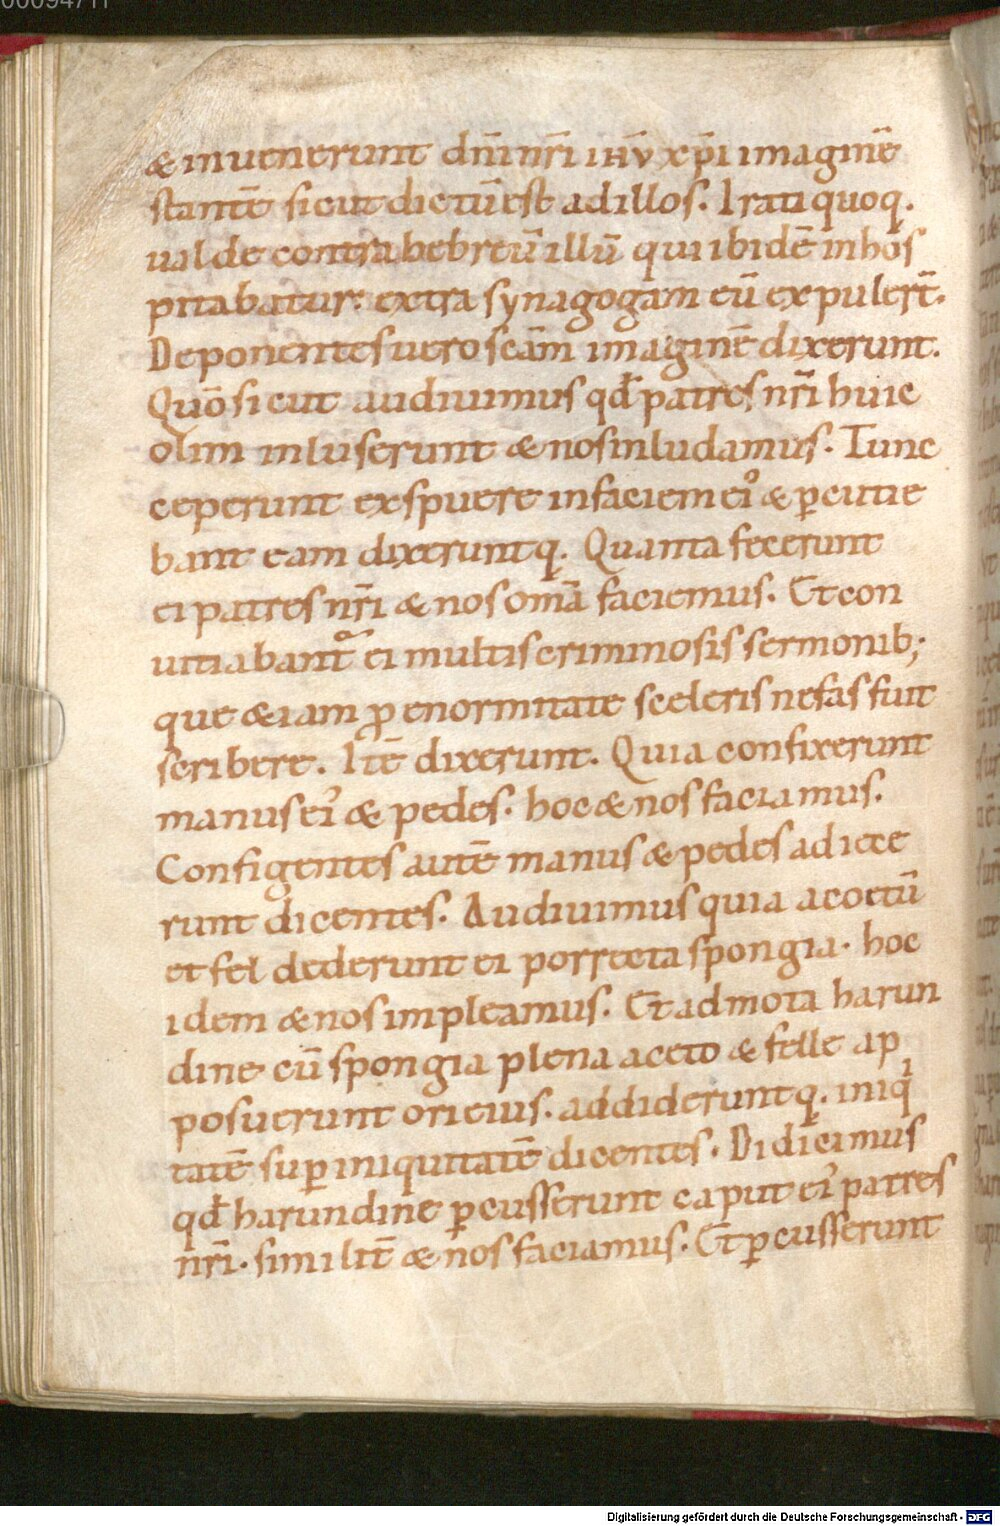 & inuenerunt dn̄i nr̄i ihv̄ xp̄i imaginē
stantē sicut dictū est ad illos. Irati quoq.
ualde contra hebreū illū qui ibidē inhos
pitabatur: extra synagogam eū expuler̄t.
Deponentes uero scām imaginē dixerunt.
Quō sicut audiuimus qđ patres nr̄i huic
olim inluserunt & nos inludamus. Tunc
ceperunt exspuere in faciem ei᾽ & ꝑcutie
bant eam dixeruntq. Quanta fecerunt
ei patres nr̄i & nos om̄a faciemus. Et con
uitiabant᷑ ei multis criminosis sermonib;
que & iam ꝓ enormitate sceleris nefas fuit
scribere. Itē dixerunt. Quia confixerunt
manus ei᾽ & pedes. hoc & nos faciamus.
Configentes autē manus & pedes adiece
runt dicentes. Audiuimus quia acoetū
et fel dederunt ei porrecta spongia. hoc
idem & nos impleamus. Et admota harun
dine cū spongia plena aceto & felle ap
posuerunt ori eius. addideruntq. iniq
tatē suꝑ iniquitatē dicentes. Didicimus
qđ harundine ꝑcusserunt caput ei᾽ patres
nr̄i. similit̄ & nos faciamus. Et ꝑcusserunt
Digitalisierung gefördert durch die Deutsche Forschungsgemeinschaft - DFG